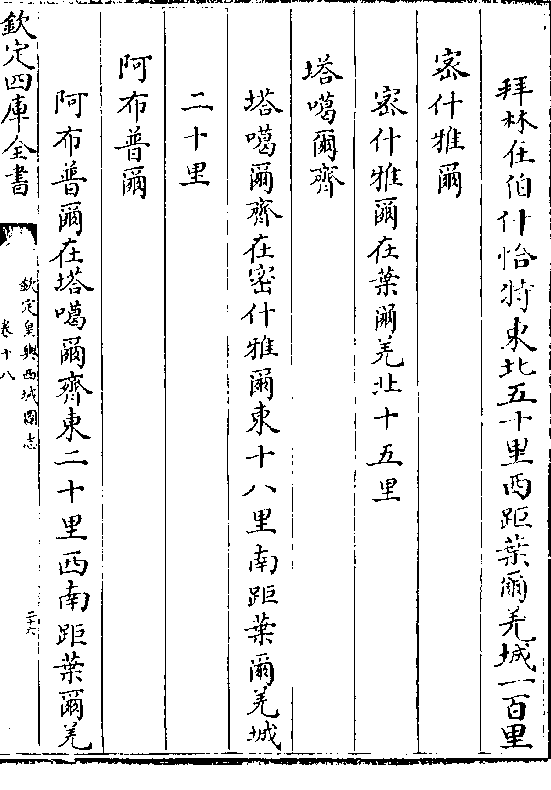 拜林在伯什恰特東北五十里西距葉爾羌城一百里
密什雅爾
密什雅爾在葉爾羌北十五里
塔噶爾齊
塔噶爾齊在密什雅爾東十八里南距葉爾羌城
二十里
阿布普爾
阿布普爾在塔噶爾齊東二十里西南距葉爾羌
欽定四庫全書
欽定皇輿西域圖志
卷十八
二十六